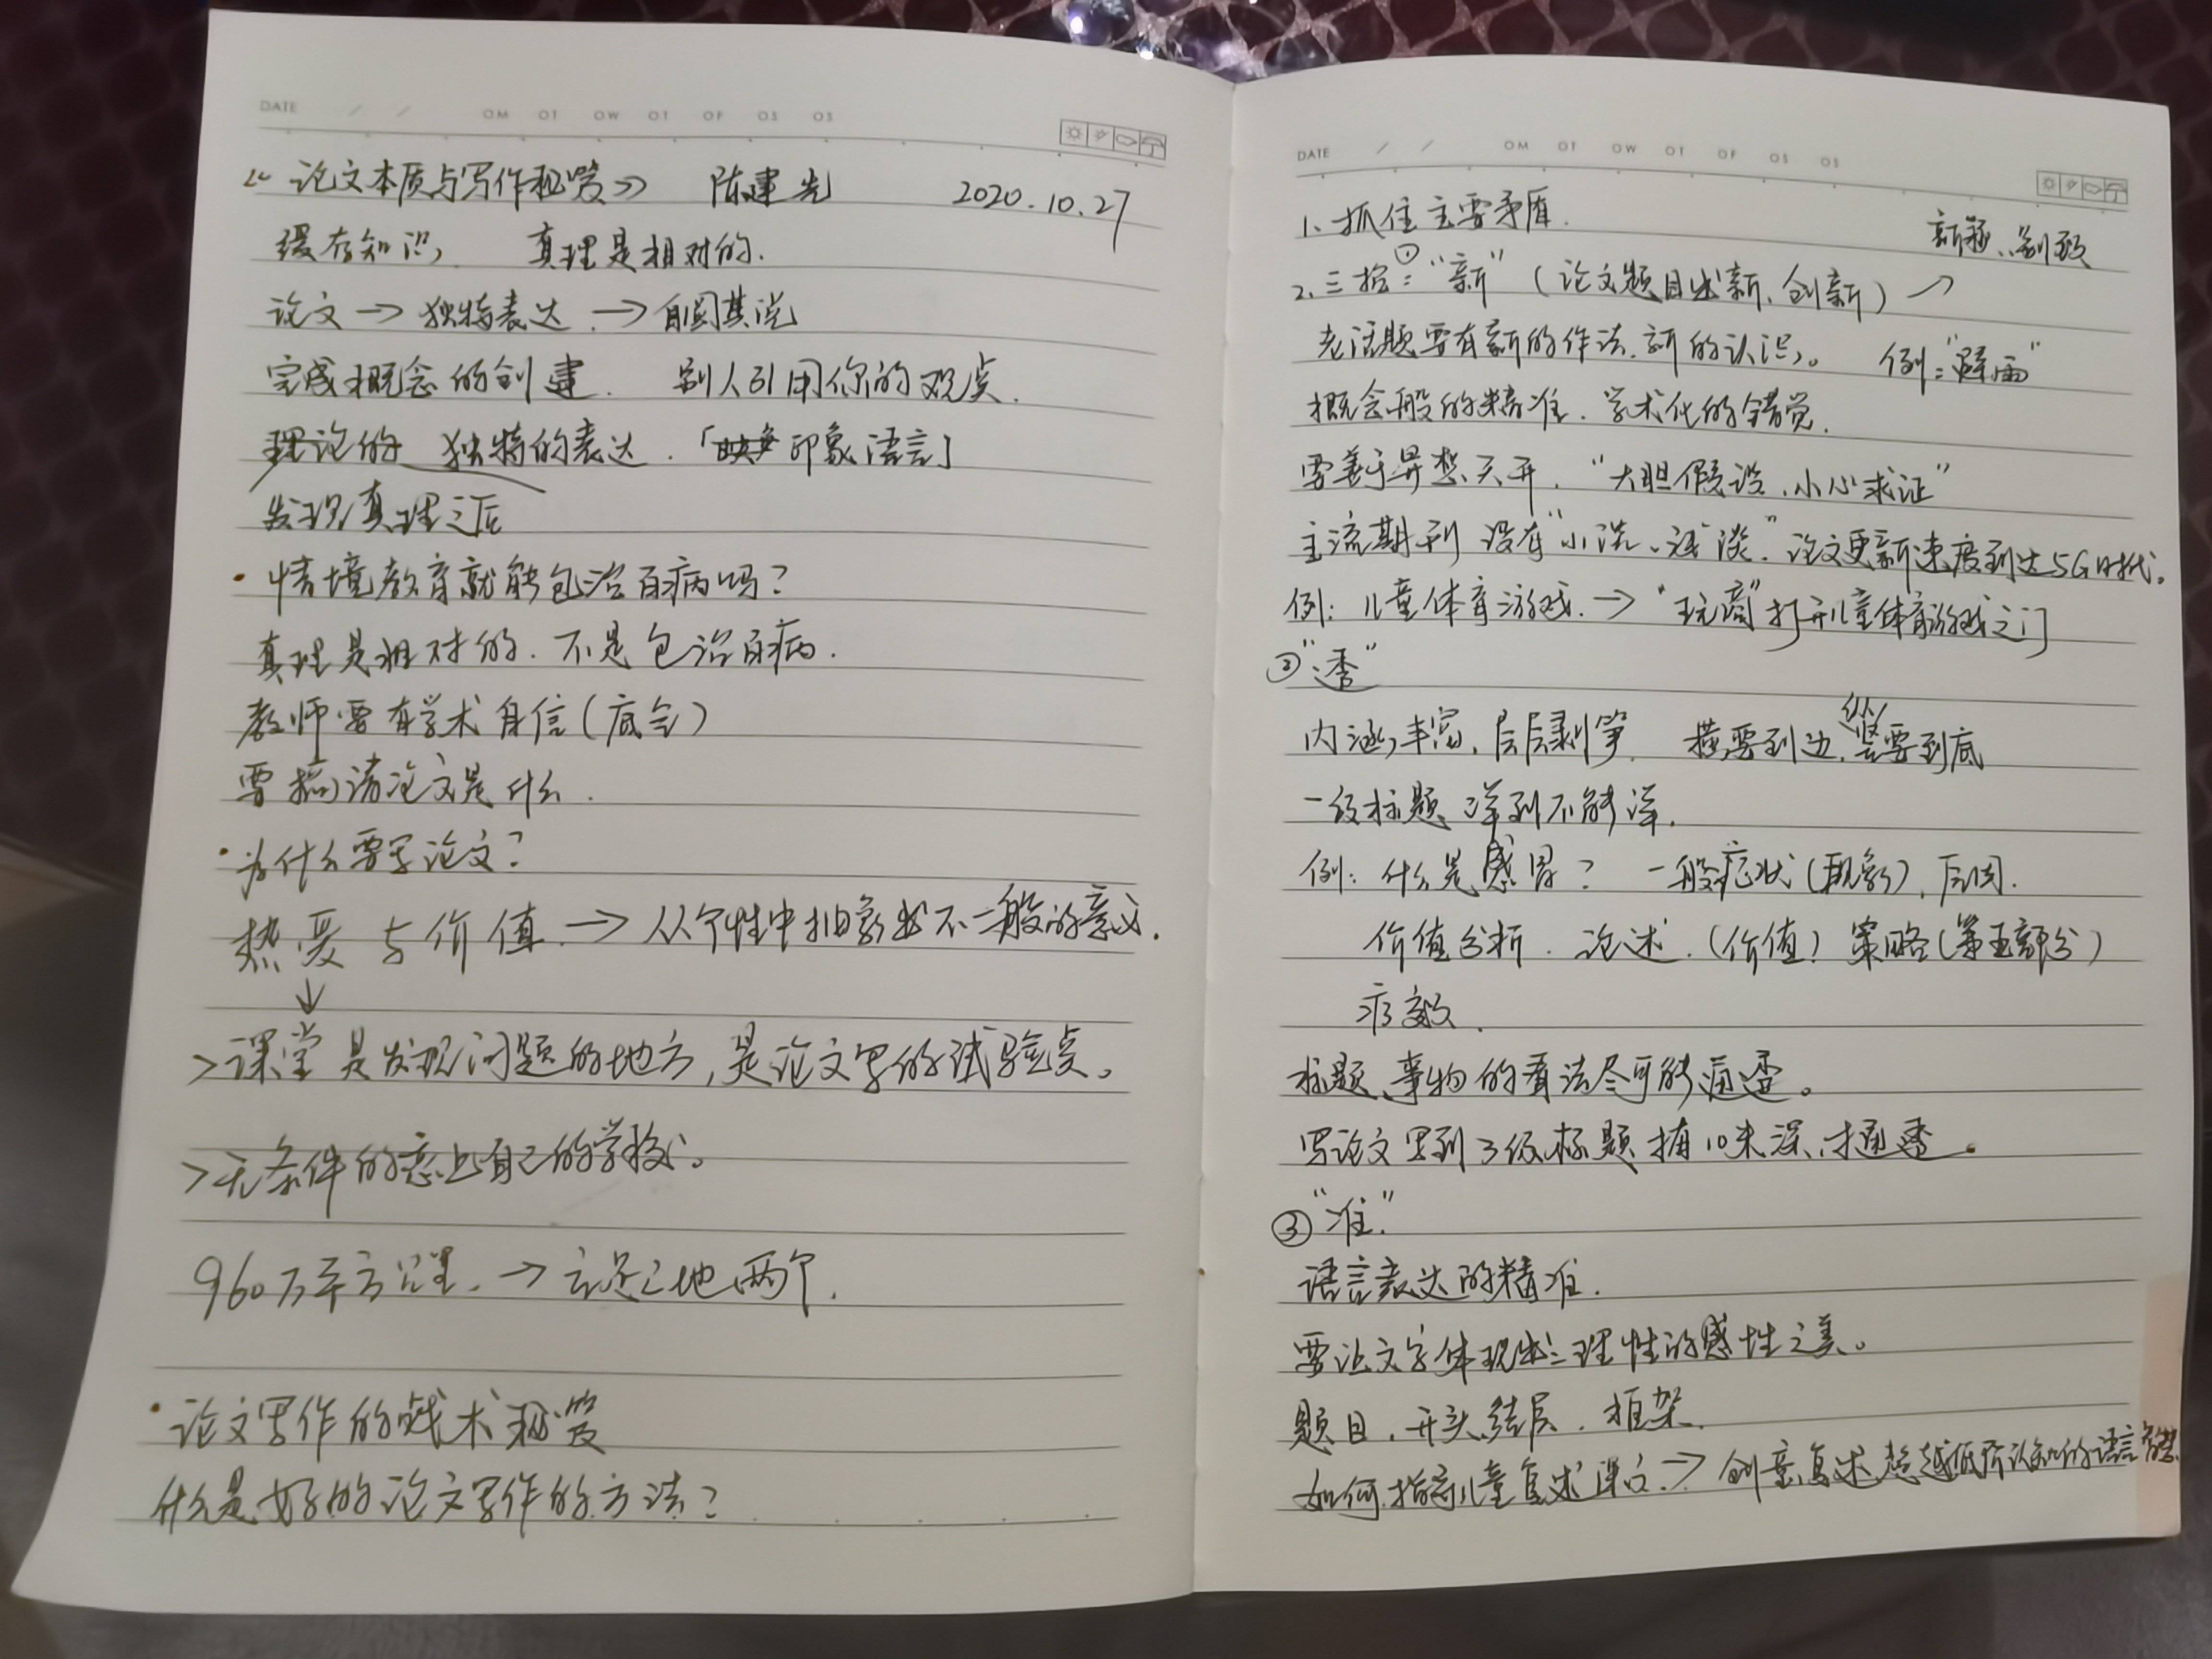 DATE / / OM OT OW OT OF OS OS
《论文本质与写作秘笈》 陈建先 2020.10.27
缓存知识, 真理是相对的.
论文→独特表达.→自圆其说
完成概念的创建. 别人引用你的观点.
理论的 独特的表达.「映象印象语言」
发现真理之后
·情境教育就能包治百病吗?
真理是相对的.不是包治百病.
教师要有学术自信(底气)
要搞清论文是什么.
·为什么要写论文?
热爱与价值.→从个性中抽象出不一般的意义.
↓
>课堂是发现问题的地方,是论文写的试验点。
>无条件的恋上自己的学校。
960万平方公里.→立足之地两个.
·论文写作的战术秘笈
什么是好的论文写作的方法?
DATE / / OM OT OW OT OF OS OS
1、抓住主要矛盾.
新颖、别致
2.三招:①"新"(论文题目出新、创新)→
老话题要有新的作法.新的认识。 例:"避雨"
概念般的精准.学术化的错觉.
要善于异想天开."大胆假设,小心求证"
主流期刊没有"小议、浅谈".论文更新速度到达5G时代。
例:儿童体育游戏.→"玩商"打开儿童体育游戏之门
②"透"
内涵丰富,层层剥笋. 横要到边,纵竖要到底
一级标题 深到不能深.
例:什么是感冒? 一般症状(现象),原因.
价值分析.论述.(价值)策略(第五部分)
疗效.
标题、事物的看法尽可能通透。
写论文写到3级标题 捅10米深,才通透。
③"准"
语言表达的精准.
要让文字体现出理性的感性之美。
题目,开头,结尾.框架.
如何指导儿童复述课文→创意复述,超越低阶认知的语言